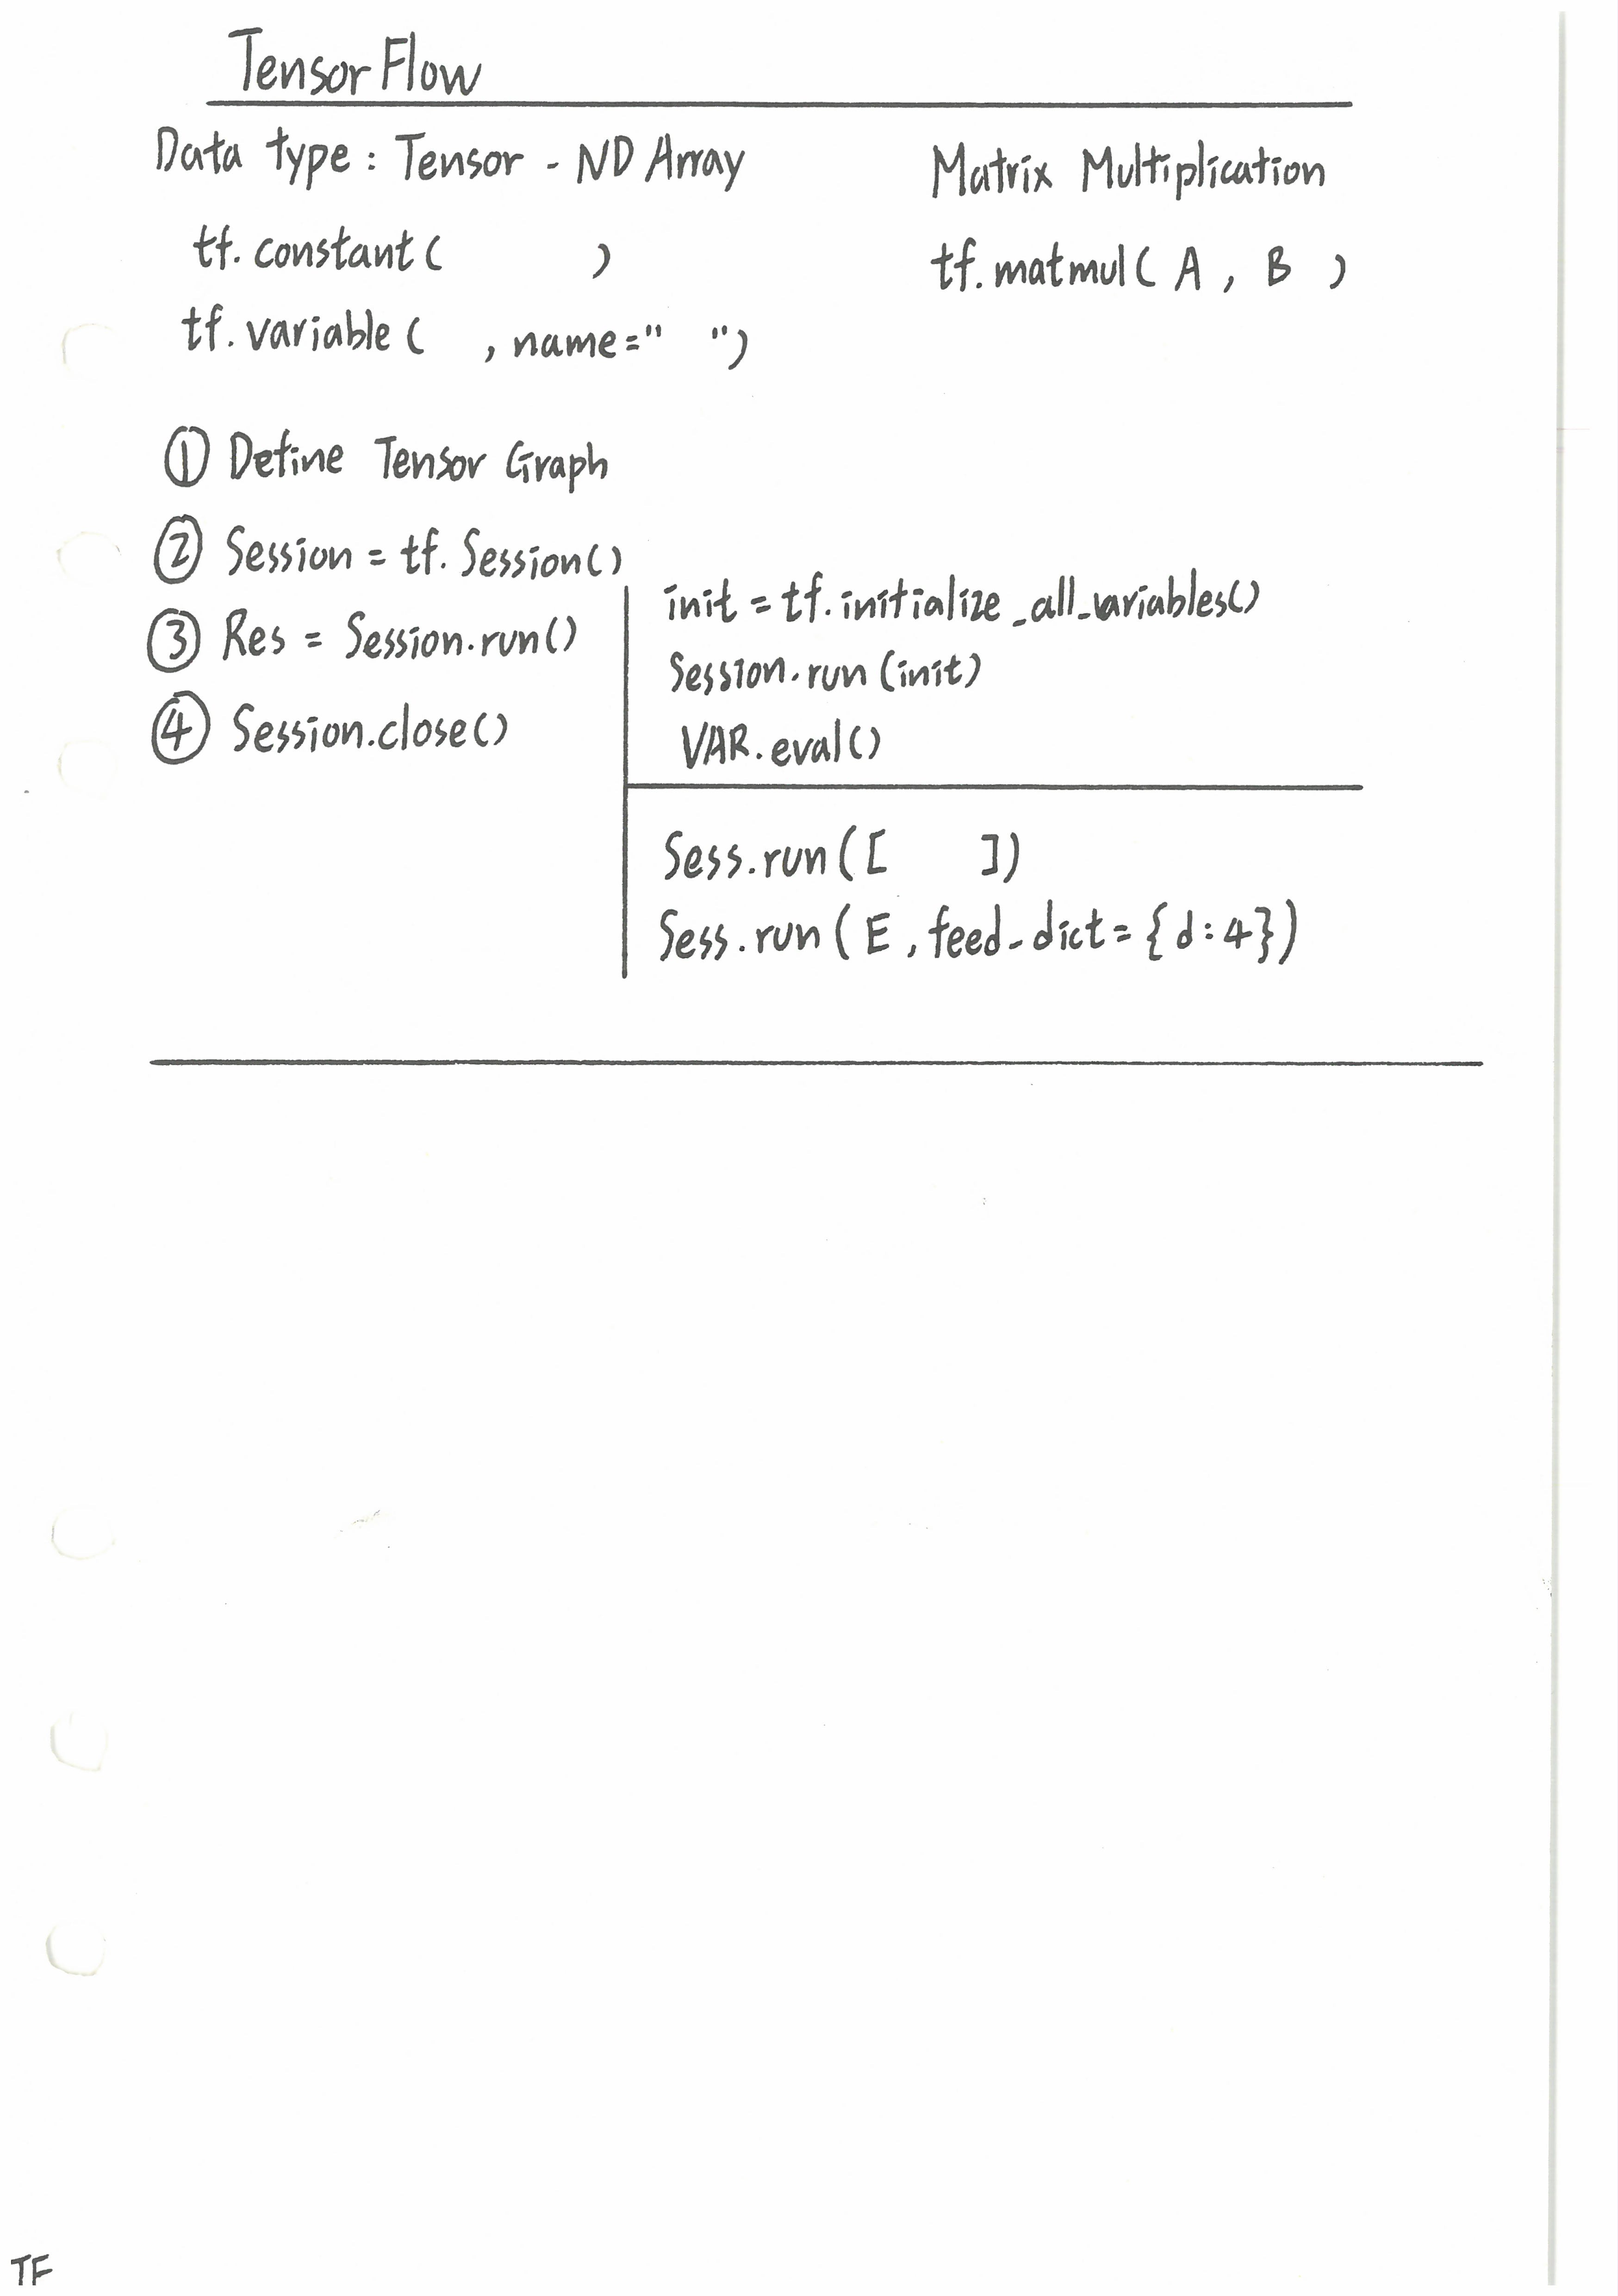 TensorFlow
Data type : Tensor - ND Array
tf.constant( )
tf.variable( , name=" ")
Matrix Multiplication
tf.matmul( A , B )
① Define Tensor Graph
② Session = tf.Session()
③ Res = Session.run()
④ Session.close()
init = tf.initialize_all_variables()
Session.run(init)
VAR.eval()
Sess.run([ ])
Sess.run( E , feed_dict = { d:4})
TF